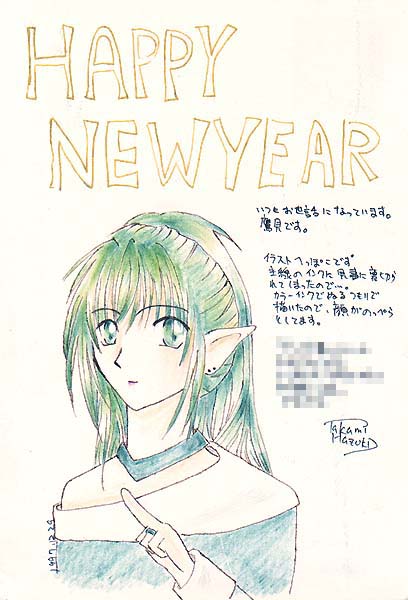 HAPPY
NEWYEAR
いつもお世話になっています。
鷹貝です。
イラストへっぽこです
主線のインクに見事に裏切ら
れてしまったので…。
カラーインクでぬるつもりで
描いたので、顔がのっぺら
としてます。
TAKAMI
HAZUKI
1997.12.29